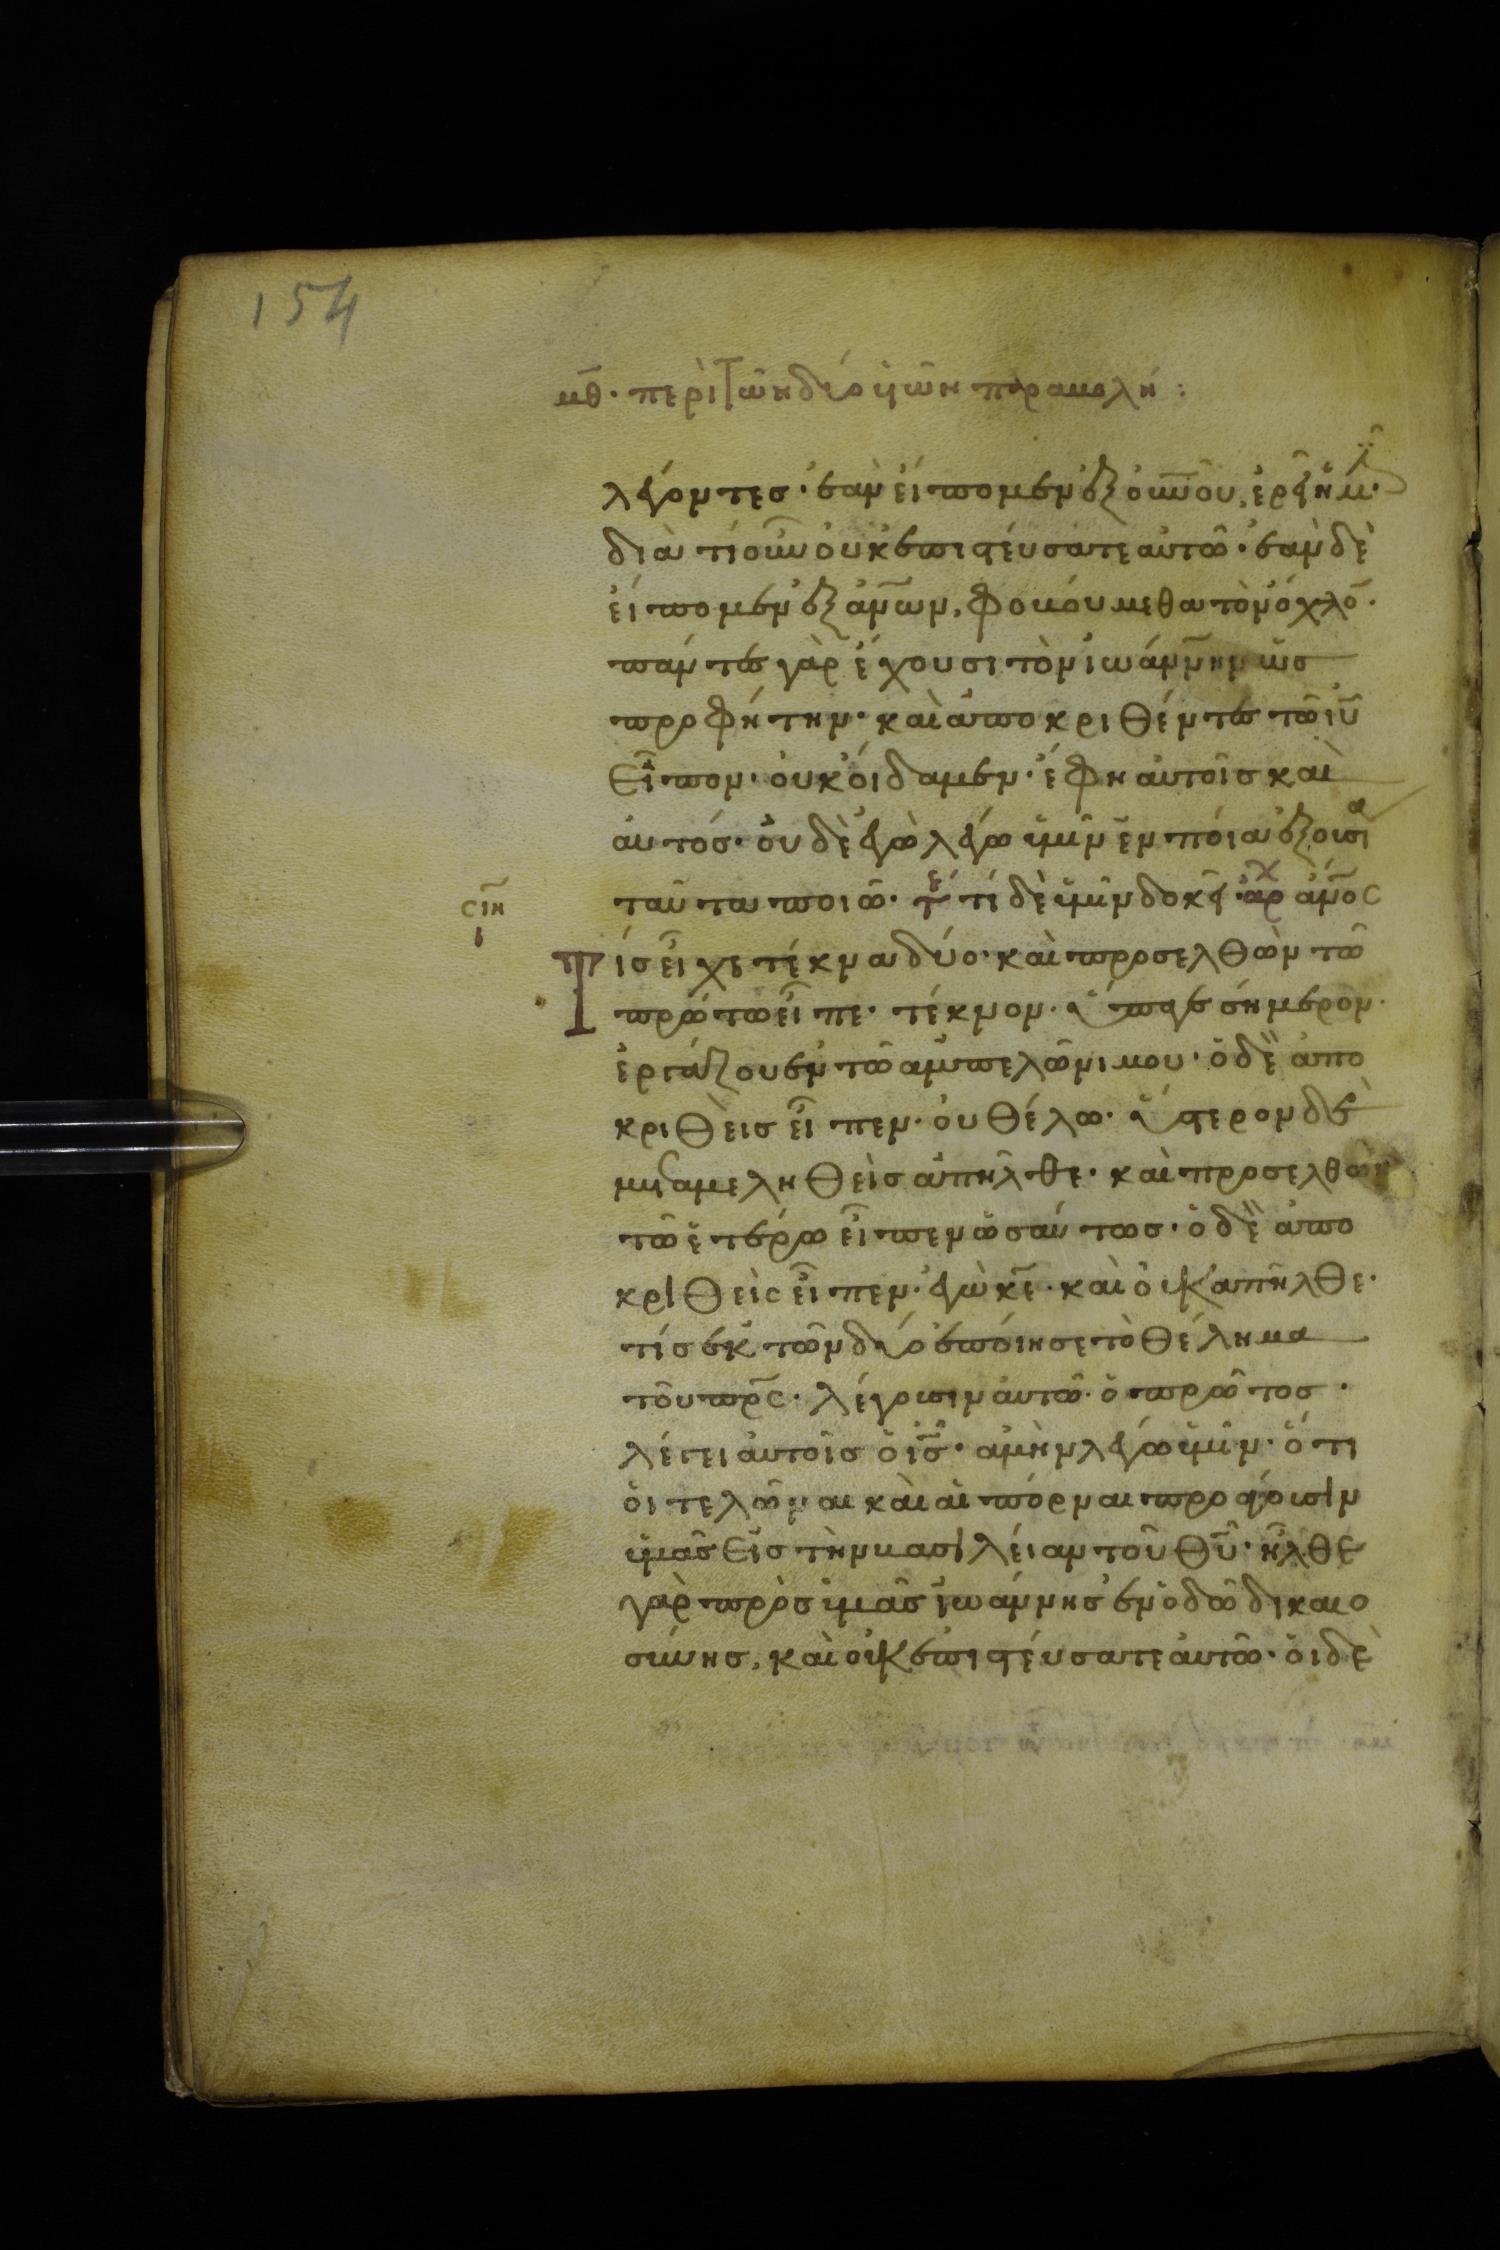 154
μθ. περὶ τῶν δύο υἱῶν παραβολή:
λέγοντες. ἐὰν εἴπομεν ἐξ οὐνοῦ, ἐρεῖ ἡμῖ.
διὰ τί οὖν οὐκ ἐπιστεύσατε αὐτῶ. ἐὰν δὲ
εἴπομεν ἐξ ἀνων, φοβούμεθα τὸν ὄχλο.
πάντες γὰρ ἔχουσι τὸν ἰωάννην ὡς
προφήτην. καὶ ἀποκριθέντες τῶ ιυ
εἶπον. οὐκ οἴδαμεν. ἔφη αὐτοῖς καὶ
αὐτός. οὐδὲ ἐγὼ λέγω ὑμῖν ἐν ποία ἐξουσία
ταῦτα ποιῶ. τε τί δὲ ὑμῖν δοκεῖ. αρχ ἀνος
σιη
ι
Τίς εἶχε τέκνα δύο. καὶ προσελθὼν τῶ
πρώτω εἶπε. τέκνον. ὕπαγε σήμερον.
ἐργάζου ἐν τῶ ἀμπελῶνι μου. ὁ δὲ ἀπο
κριθεὶς εἶπεν. οὐ θέλω. ὕστερον δὲ
μεταμεληθεὶς ἀπῆλθε. καὶ προσελθὼν
τῶ ἑτέρω εἶπεν ὡσαύτως. ὁ δὲ ἀπο
κριθεὶς εἶπεν. ἐγὼ κε. καὶ οὐκ ἀπῆλθε.
τίς ἐκ τῶν δύο ἐποίησε τὸ θέλημα
τοῦ πρς. λέγουσιν αὐτῶ. ὁ πρῶτος.
λέγει αὐτοῖς ὁ ις. ἀμὴν λέγω ὑμῖν. ὅτι
οἱ τελῶναι καὶ αἱ πόρναι προάγουσιν
ὑμᾶς εἰς τὴν βασιλείαν τοῦ θυ. ἦλθε
γὰρ πρὸς ὑμᾶς ἰωάννης ἐν ὁδῶ δικαιο
σύνης, καὶ οὐκ ἐπιστεύσατε αὐτῶ. οἱ δὲ